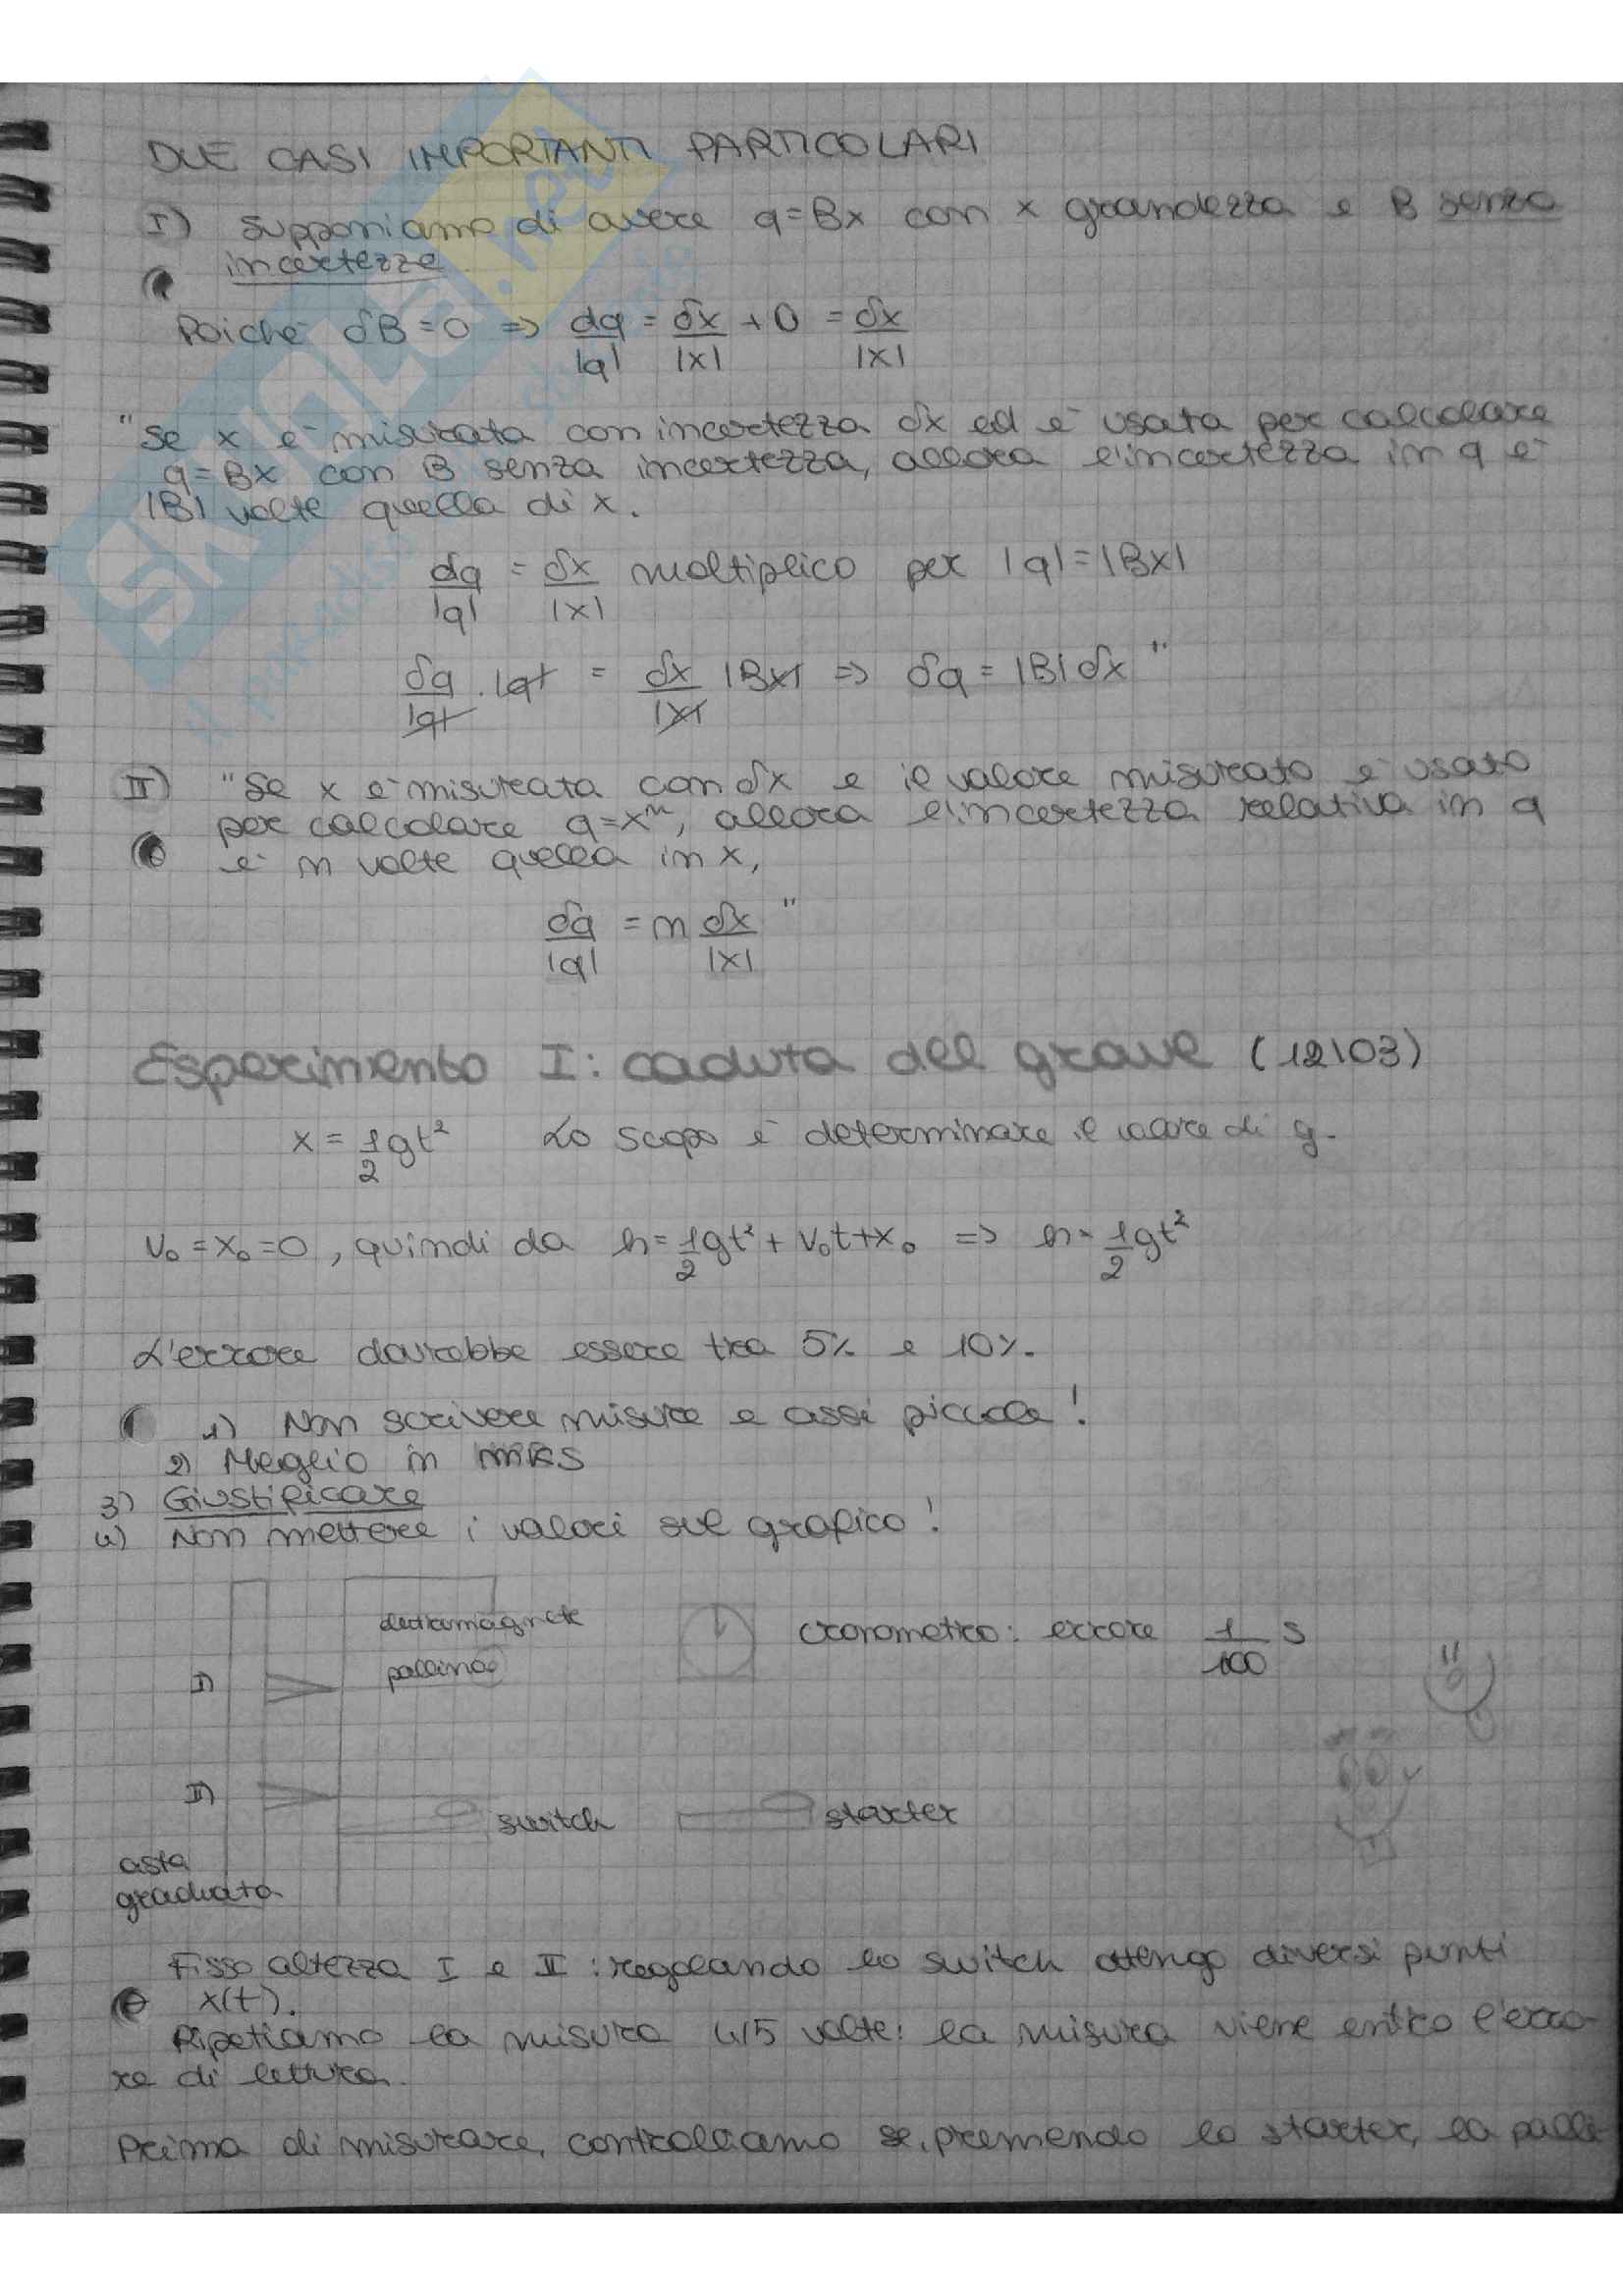 DUE CASI IMPORTANTI PARTICOLARI
I) Supponiamo di avere q=Bx con x grandezza e B senza
incertezze.
Poiché δB=0 => dq/|q| = δx/|x| + 0 = δx/|x|
"Se x è misurata con incertezza δx ed è usata per calcolare
q=Bx con B senza incertezza, allora l'incertezza in q è
|B| volte quella di x.
dq/|q| = δx/|x| moltiplico per |q|=|Bx|
δq/|q| · |q| = δx/|x| |Bx| => δq = |B|δx "
II) "Se x è misurata con δx e il valore misurato è usato
per calcolare q=xⁿ, allora l'incertezza relativa in q
è n volte quella in x,
δq/|q| = n δx/|x| "
Esperimento I: caduta del grave (12\03)
x = 1/2 gt² Lo scopo è determinare il valore di g.
V₀ = x₀ = 0, quindi da h = 1/2 gt² + V₀t + x₀ => h = 1/2 gt²
L'errore dovrebbe essere tra 5% e 10%.
1) Non scrivere misure e assi piccole!
2) Meglio in mks
3) Giustificare
4) Non mettere i valori sul grafico!
elettromagnete
cronometro: errore 1/100 s
pallina
I)
II)
switch
starter
asta
graduata
Fisso altezza I e II: regolando lo switch ottengo diversi punti
x(t).
Ripetiamo la misura 4/5 volte: la misura viene entro l'erro-
re di lettura.
Prima di misurare, controlliamo se, premendo lo starter, la palli
SKUOLA.net